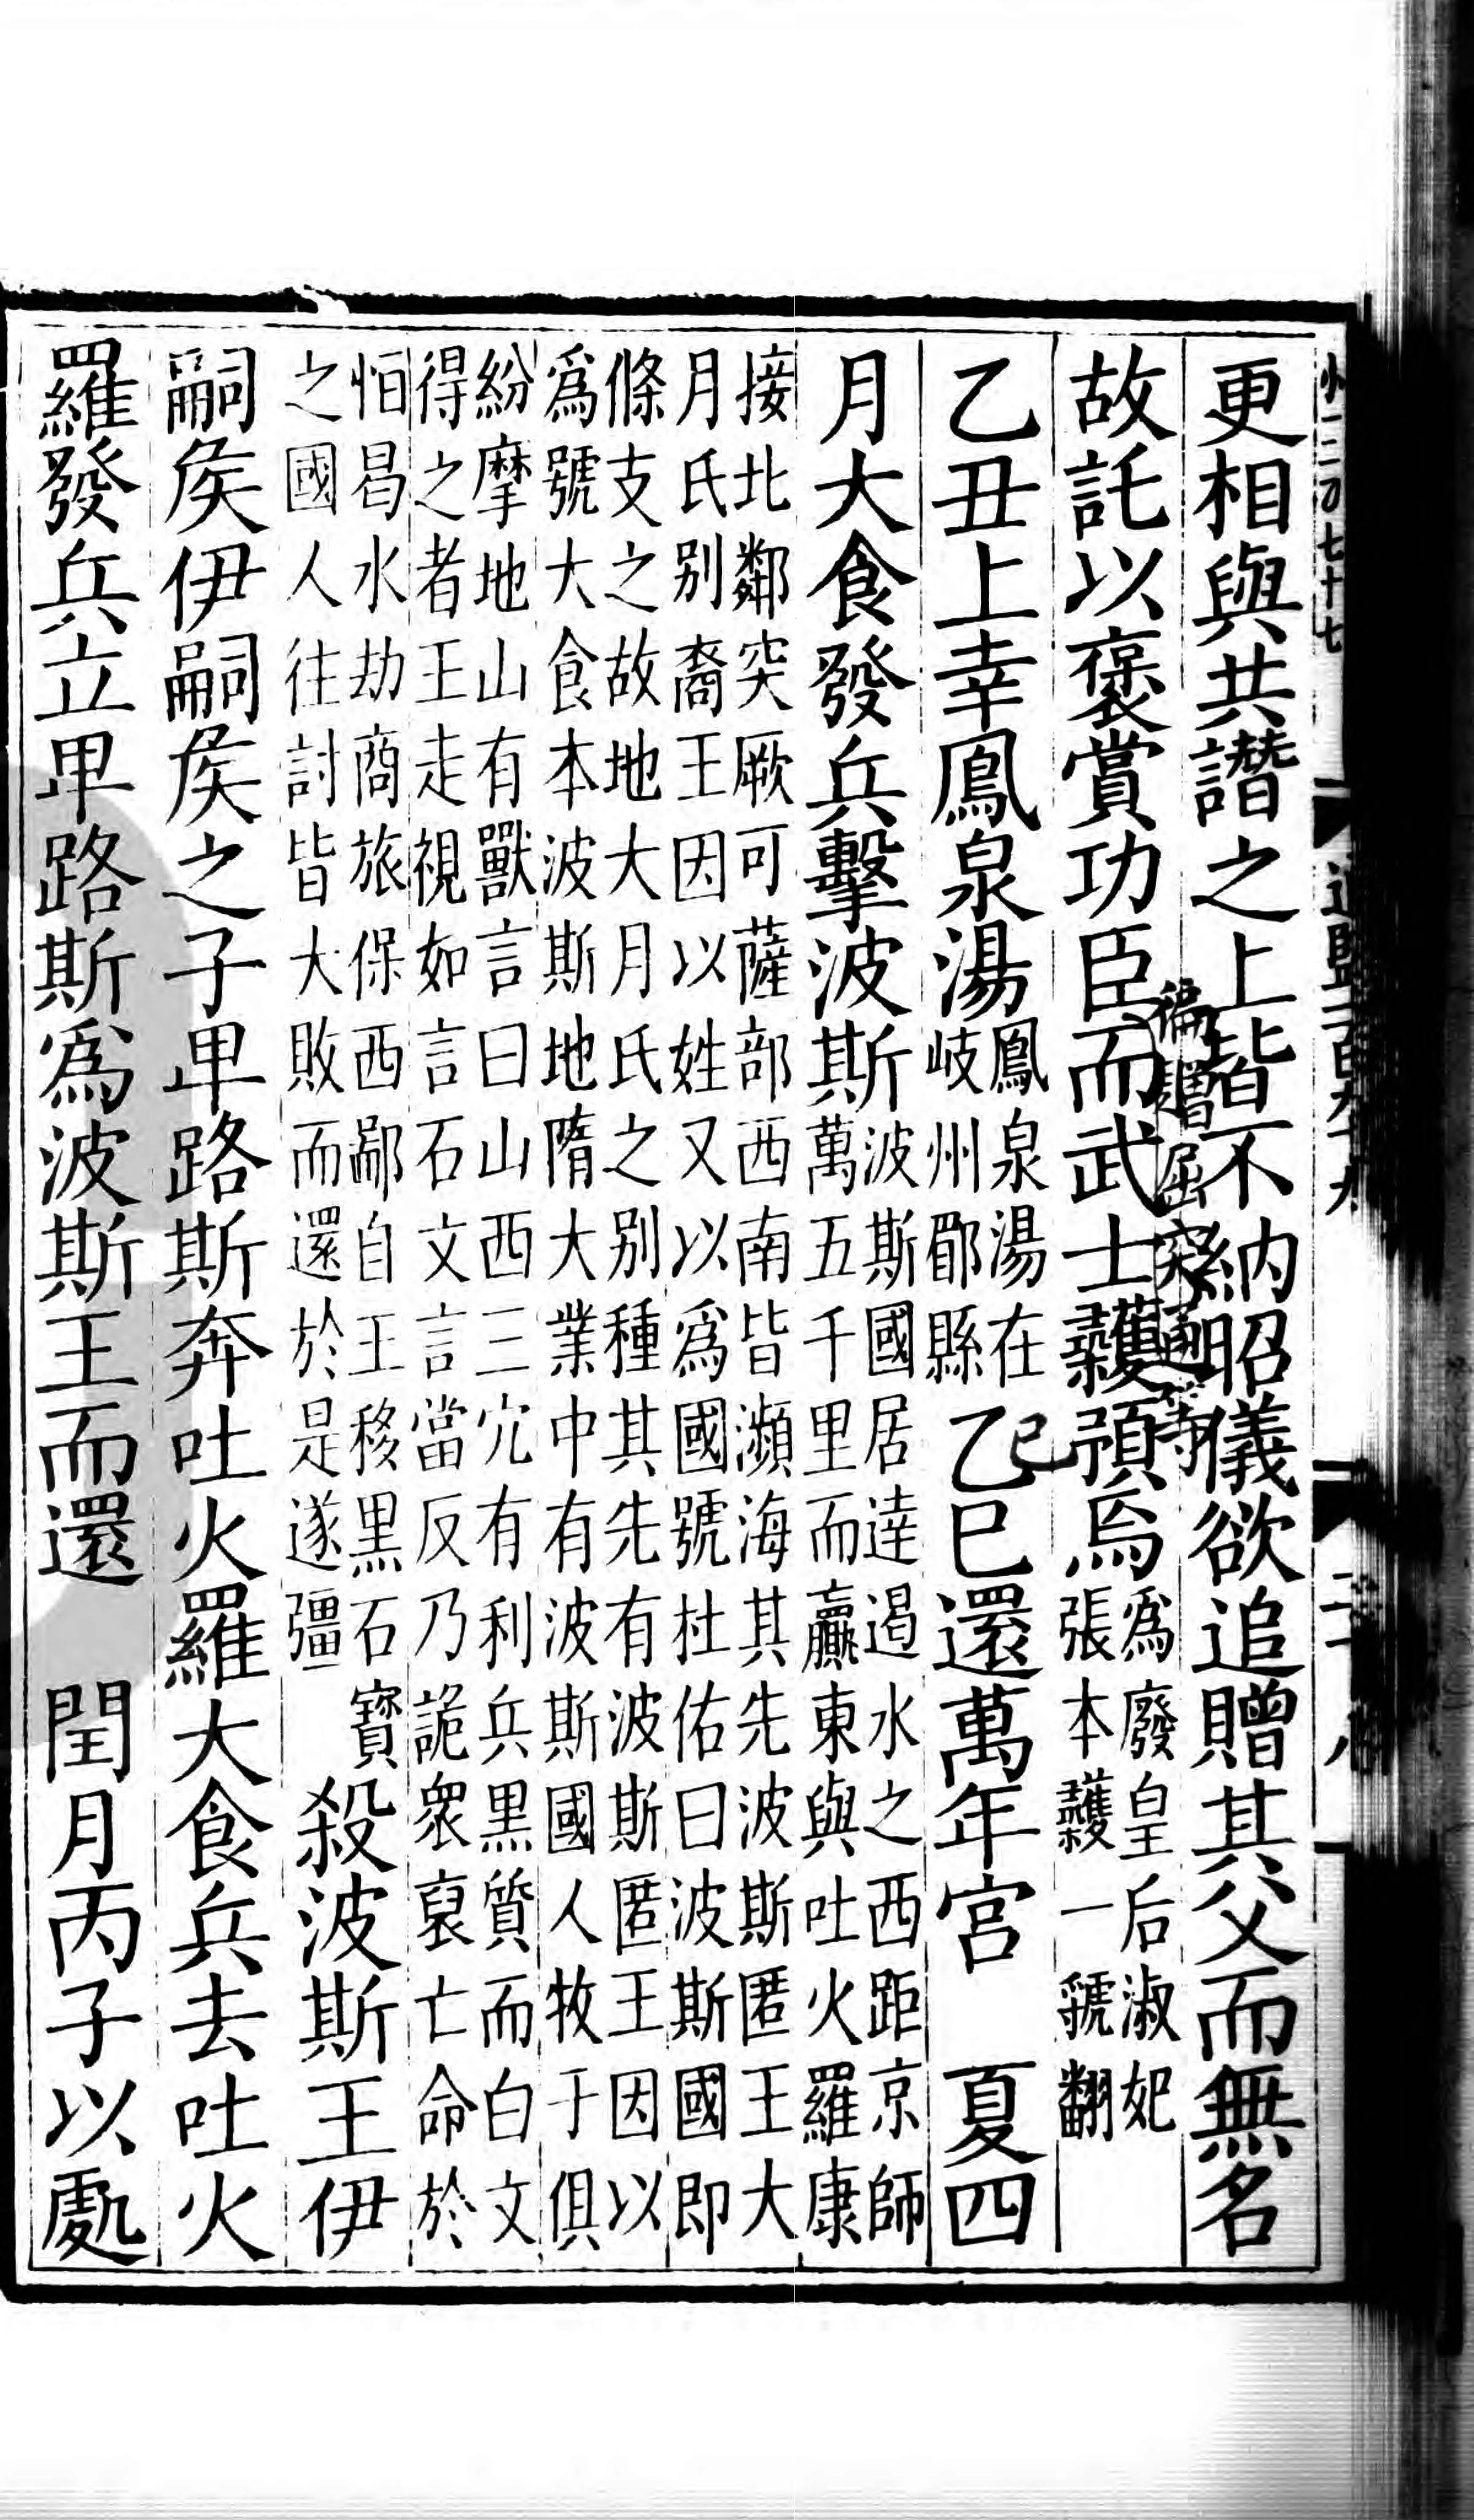 更相與共譖之上皆不納昭儀欲追贈其父而無名
故託以褒賞功臣而武士彠預焉爲廢皇后淑妃張本彠一虢翻
徧贈屈突通等
乙丑上幸鳳泉湯鳳泉湯在岐州郿縣乙巳還萬年宮　夏四
己
月大食發兵擊波斯波斯國居達遏水之西距京師萬五千里而贏東與吐火羅康
接北鄰突厥可薩部西南皆瀕海其先波斯匿王大
月氏别裔王因以姓又以爲國號杜佑曰波斯國即
條支之故地大月氏之别種其先有波斯匿王因以
爲號大食本波斯地隋大業中有波斯國人牧于俱
紛摩地山有獸言曰山西三穴有利兵黑質而白文
得之者王走視如言石文言當反乃詭衆裒亡命於
恒曷水劫商旅保西鄙自王移黑石寶
之國人往討皆大敗而還於是遂彊　殺波斯王伊
嗣矦伊嗣矦之子卑路斯奔吐火羅大食兵去吐火
羅發兵立卑路斯爲波斯王而還　閏月丙子以處